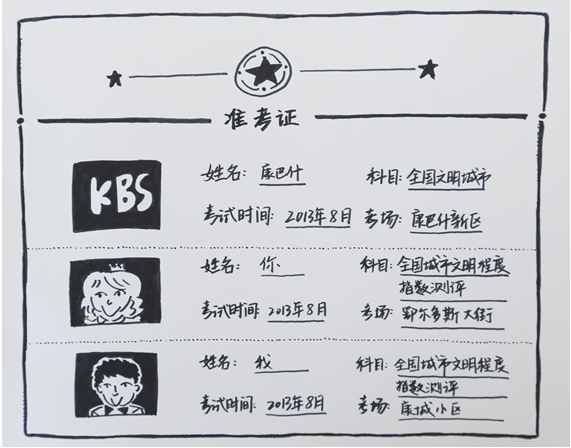 准考证
KBS
姓名：康巴什 科目：全国文明城市
考试时间：2013年8月 考场：康巴什新区
姓名：你 科目：全国城市文明程度
指数测评
考试时间：2013年8月 考场：鄂尔多斯大街
姓名：我 科目：全国城市文明程度
指数测评
考试时间：2013年8月 考场：康城小区